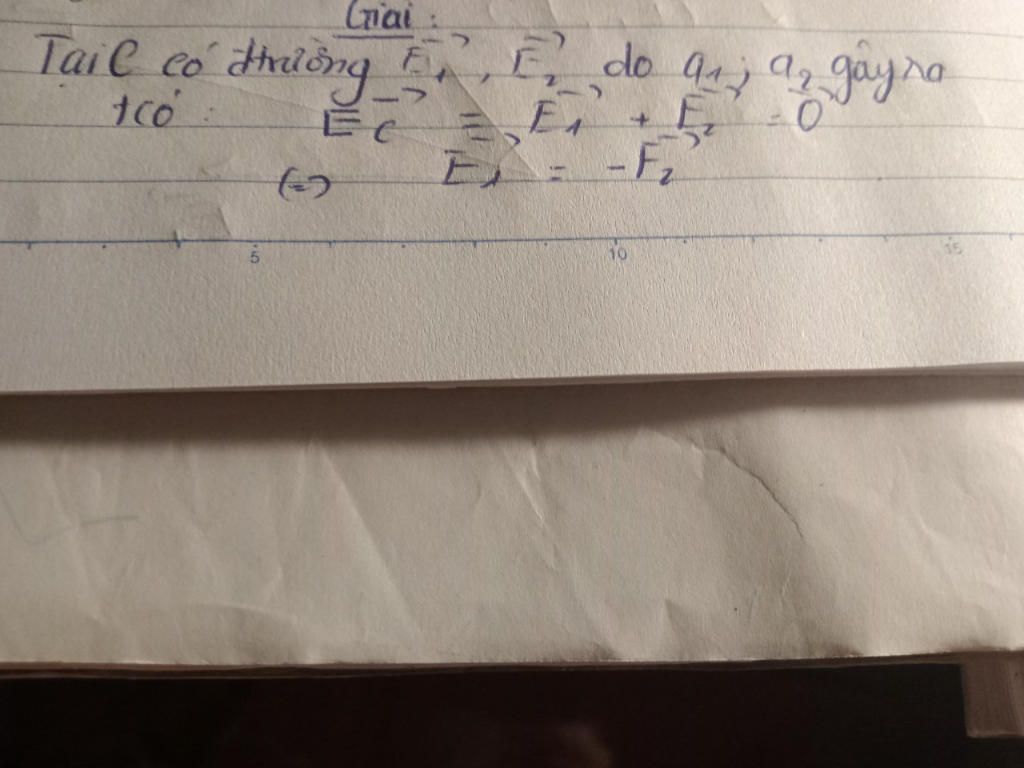 Giải:
Tại C có đ trường E₁→, E₂→ do q₁; q₂ gây ra
tcó: E→c = E₁→ + E₂→ = 0→
(=) E₁→ = -E₂→
5 10 15